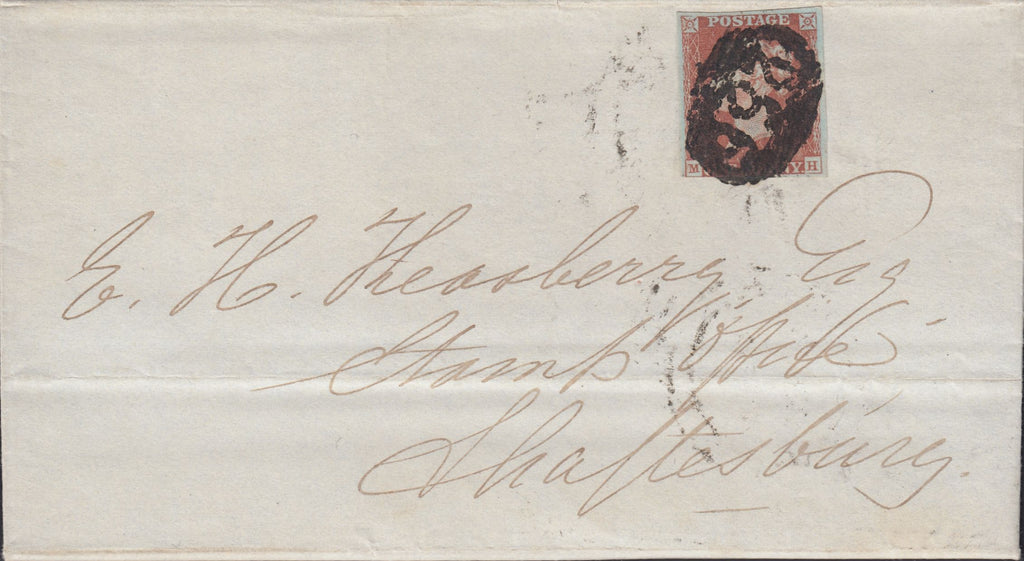 POSTAGE
M H
E. H. Keasberry Esq
Stamp Office
Shaftesbury.